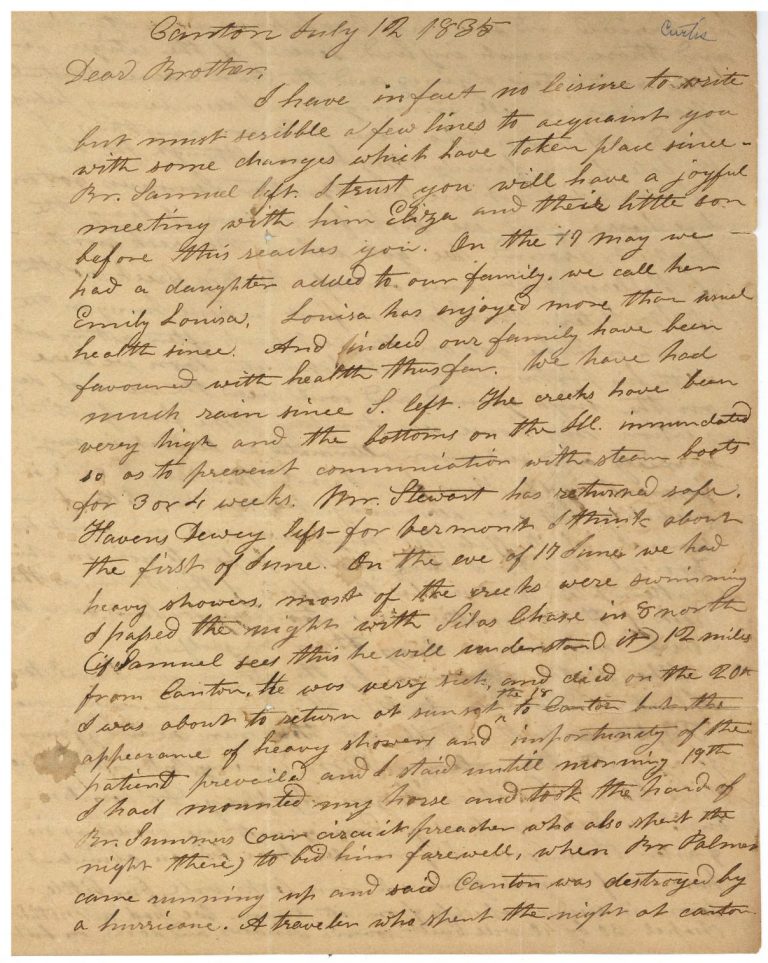 Canton July 12 1835
Curtis
Dear Brother,
I have infact no leisure to write
but must scribble a few lines to acquaint you
with some changes which have taken place since -
Br. Samuel left. I trust you will have a joyful
meeting with him Eliza and their little son
before this reaches you. On the 17 May we
had a daughter added to our family. we call her
Emily Louisa. Louisa has enjoyed more than usual
health since. And indeed our family have been
favoured with health thus far. We have had
much rain since S. left. The creeks have been
verry high and the bottoms on the Ill. innundated
so as to prevent communication with steam boats
for 3 or 4 weeks. Mr. Stewart has returned safe.
Havens Dewey left for vermont I think about
the first of June. On the eve of 17 June we had
heavy showers. most of the creeks were swimming
I passed the night with Silas Chase in 8 north
(if Samuel sees this he will understand it) 12 miles
from Canton, He was verry sick, and died on the 20th
I was about to return at sunset the 18 to Canton but the
appearance of heavy showers and importunity of the
patient prevailed and I staid untill morning 19th
I had mounted my horse and took the hand of
Br. Summers (our circuit preacher who also spent the
night there) to bid him farewell, when Br Palmer
came running up and said Canton was destroyed by
a hurricane. A traveler who spent the night at canton